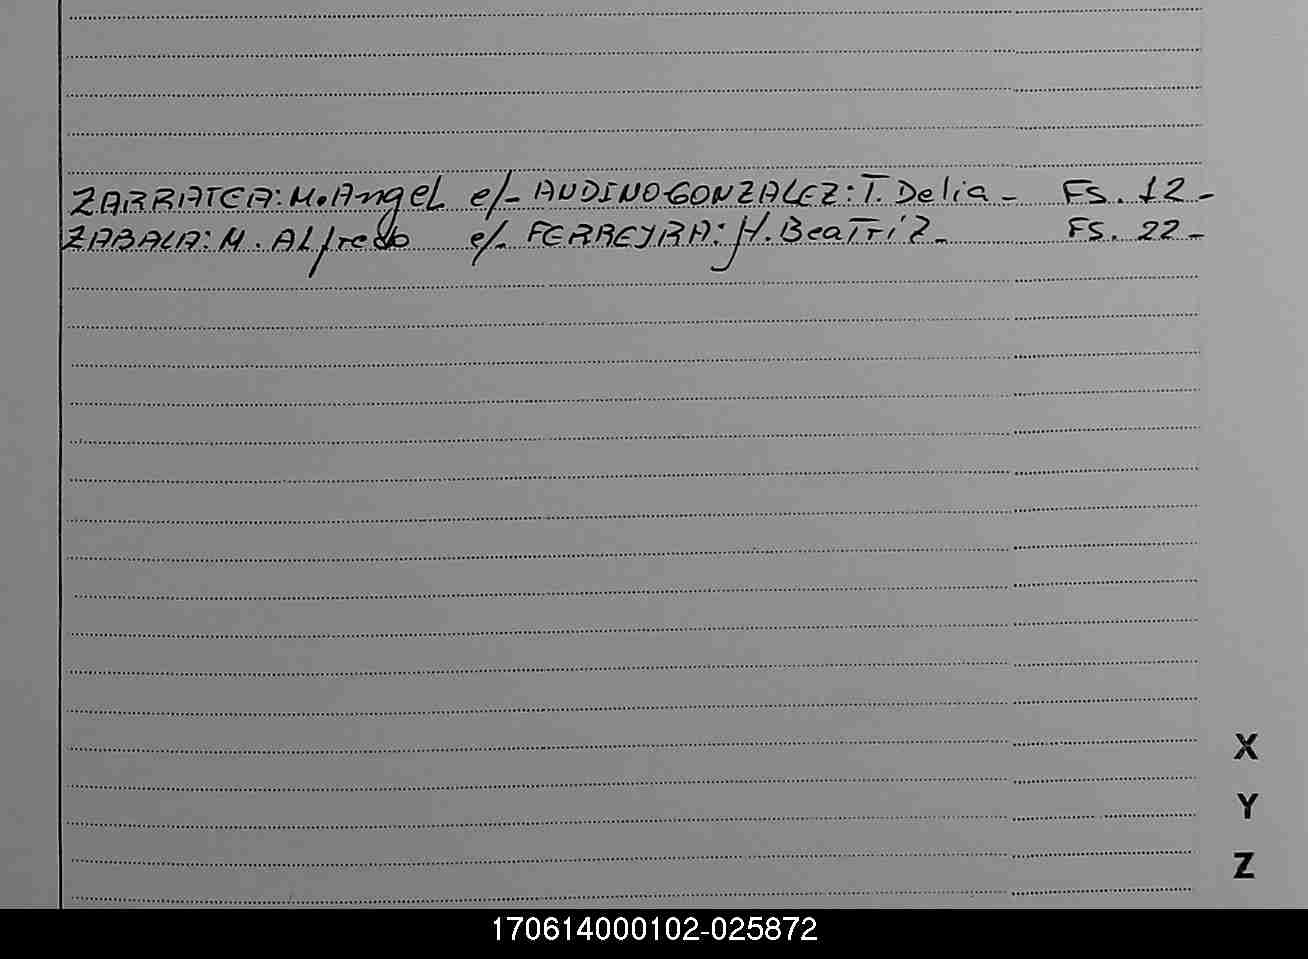 ZARRATEA: M. Angel e/- AUDINO GONZALEZ: T. Delia - FS. 12 -
ZABALA: M. Alfredo e/- FERREYRA: H. Beatriz - FS. 22 -
X
Y
Z
170614000102-025872